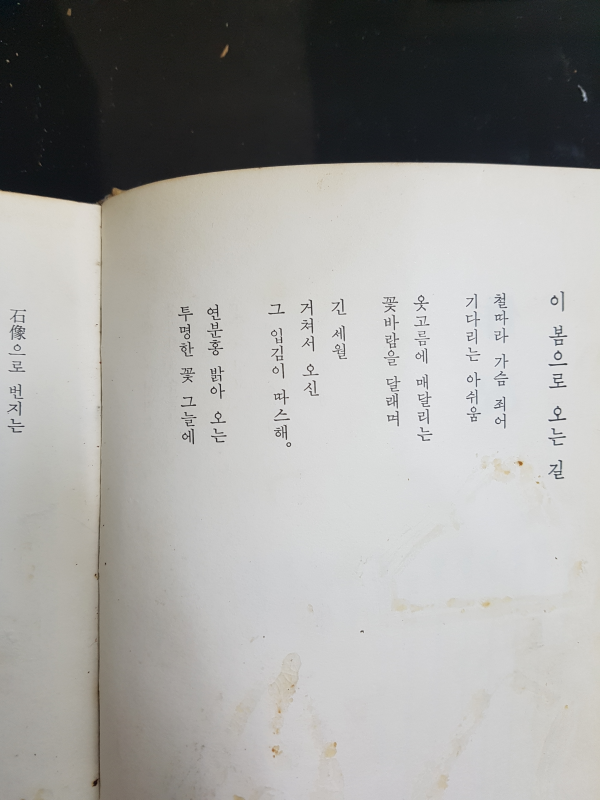 이 봄으로 오는 길
철따라 가슴 죄어
기다리는 아쉬움
옷고름에 매달리는
꽃바람을 달래며
긴 세월
거쳐서 오신
그 입김이 따스해。
연분홍 밝아 오는
투명한 꽃 그늘에
石像으로 번지는